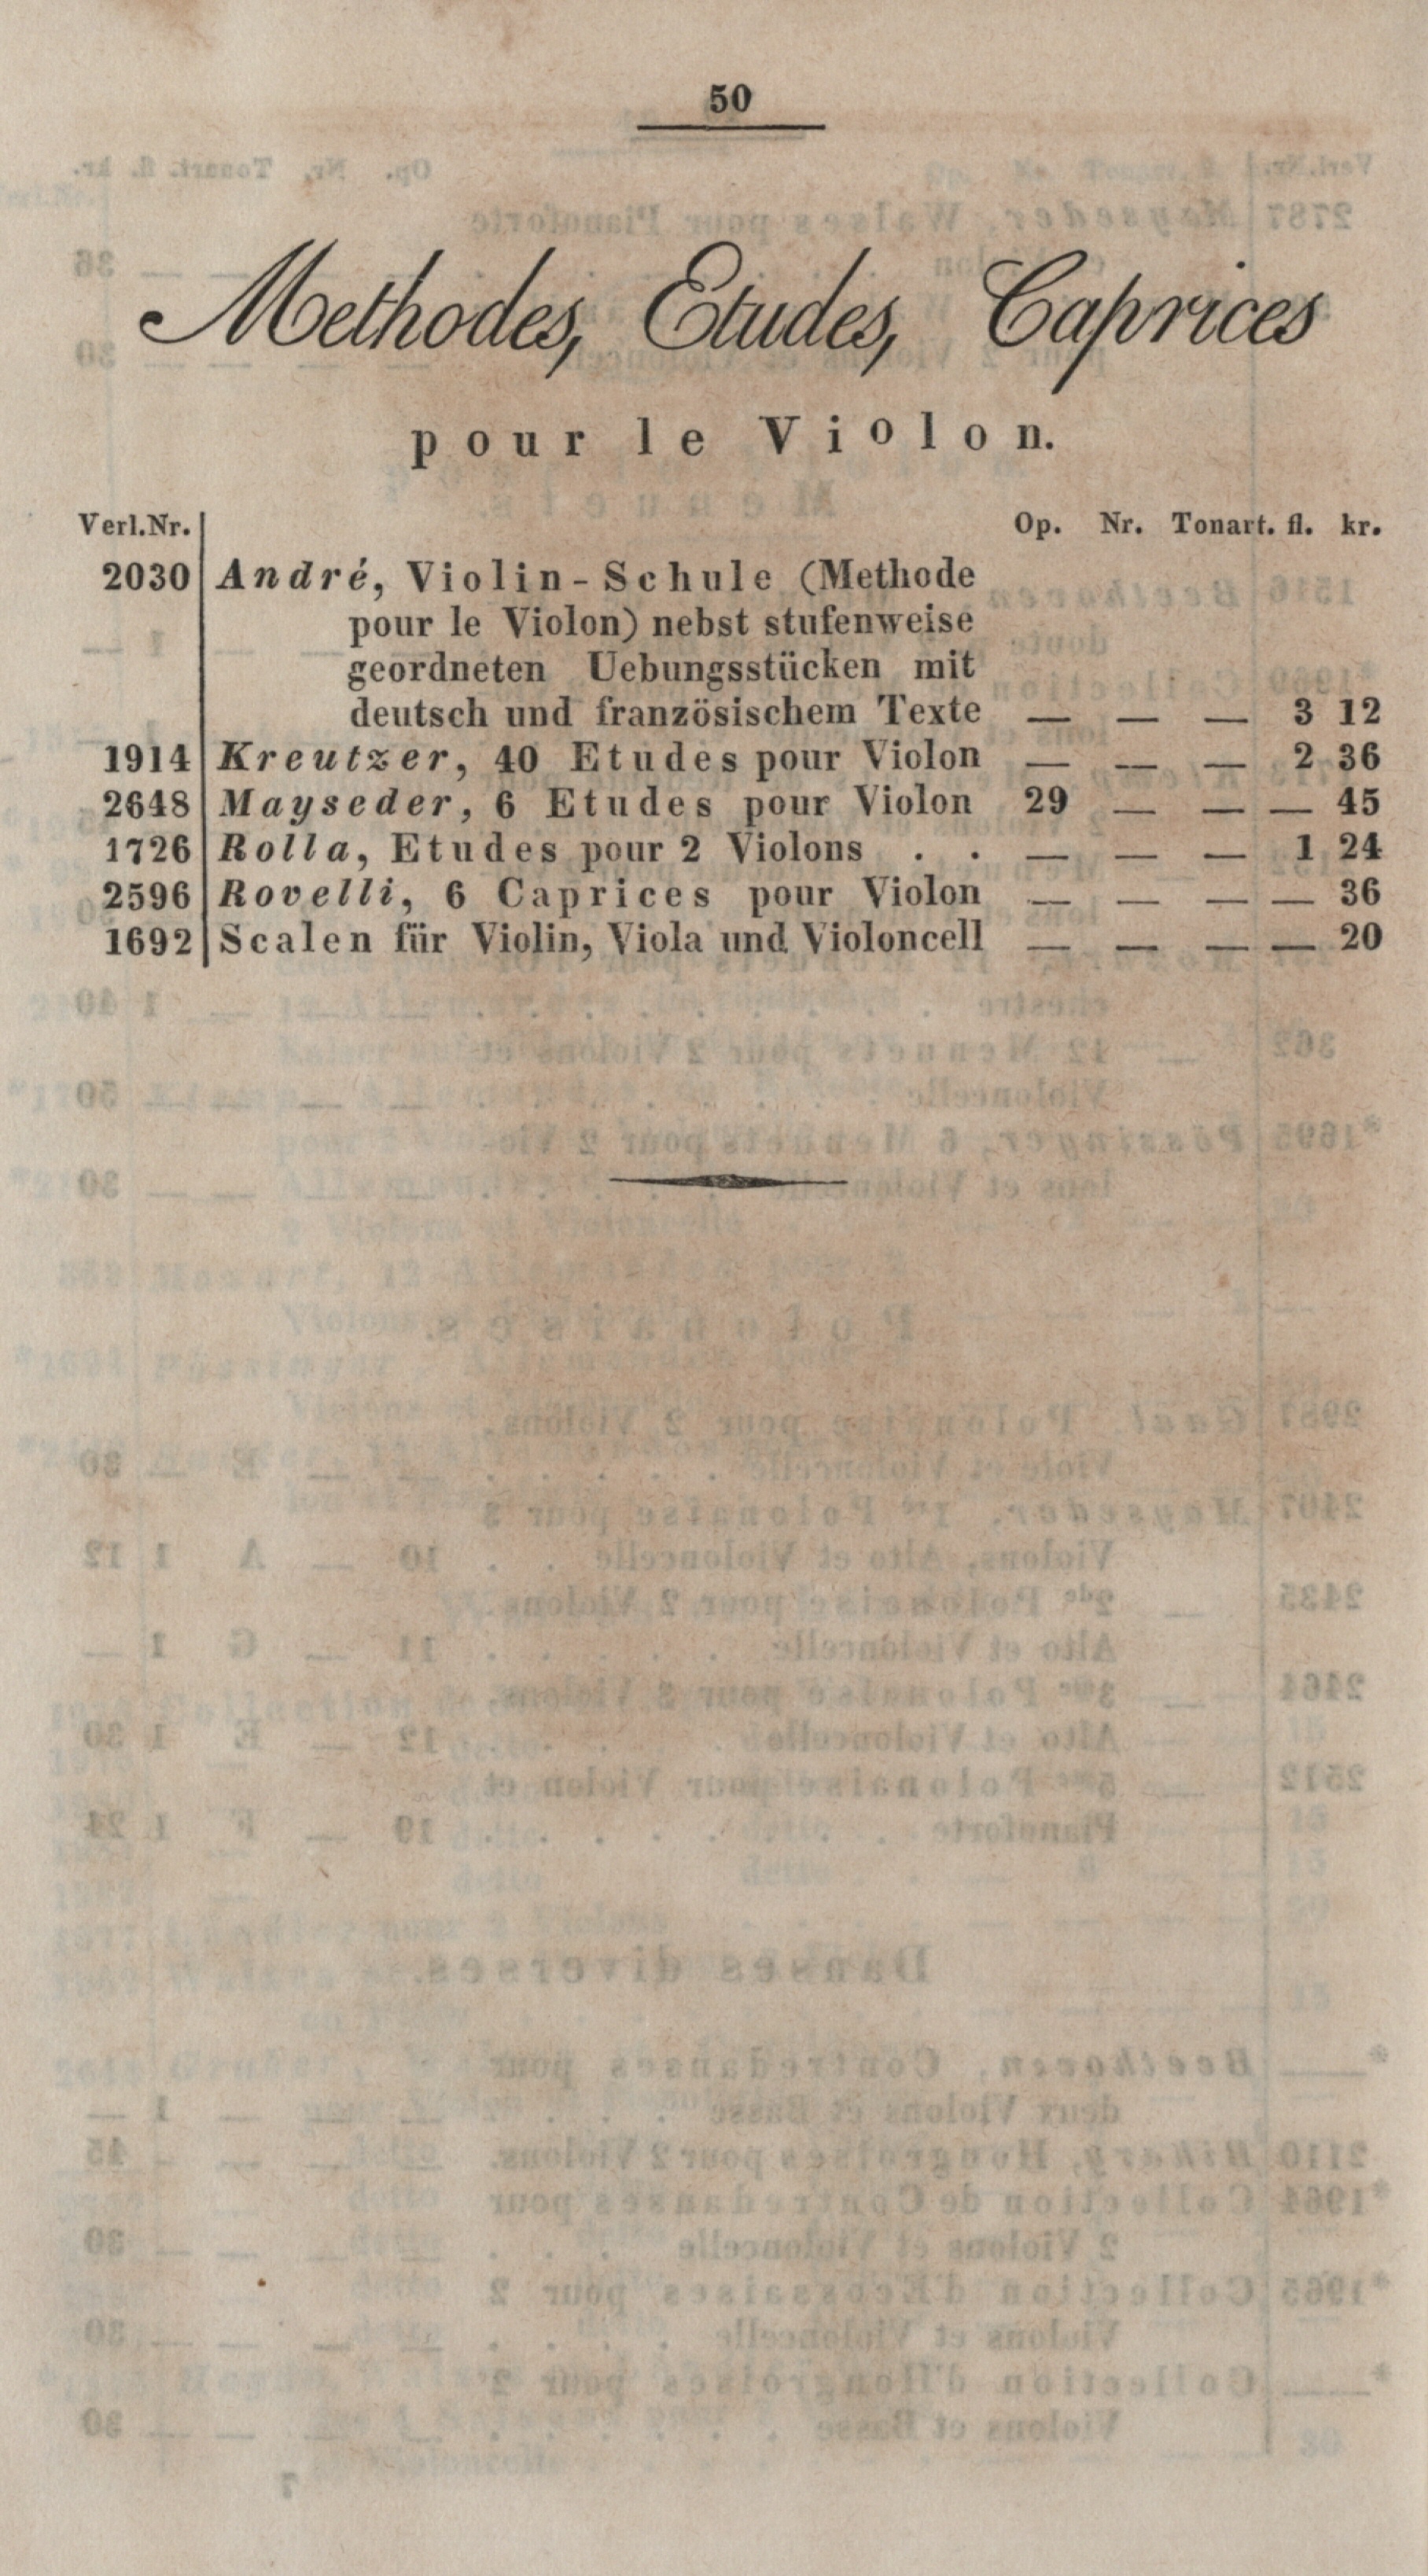 50
Methodes, Etudes, Caprices
pour le Violon.
Verl.Nr. Op. Nr. Tonart. fl. kr.
2030 André, Violin-Schule (Methode
pour le Violon) nebst stufenweise
geordneten Uebungsstücken mit
deutsch und französischem Texte — — — 3 12
1914 Kreutzer, 40 Etudes pour Violon — — — 2 36
2648 Mayseder, 6 Etudes pour Violon 29 — — — 45
1726 Rolla, Etudes pour 2 Violons . . — — — 1 24
2596 Rovelli, 6 Caprices pour Violon — — — — 36
1692 Scalen für Violin, Viola und Violoncell — — — — 20